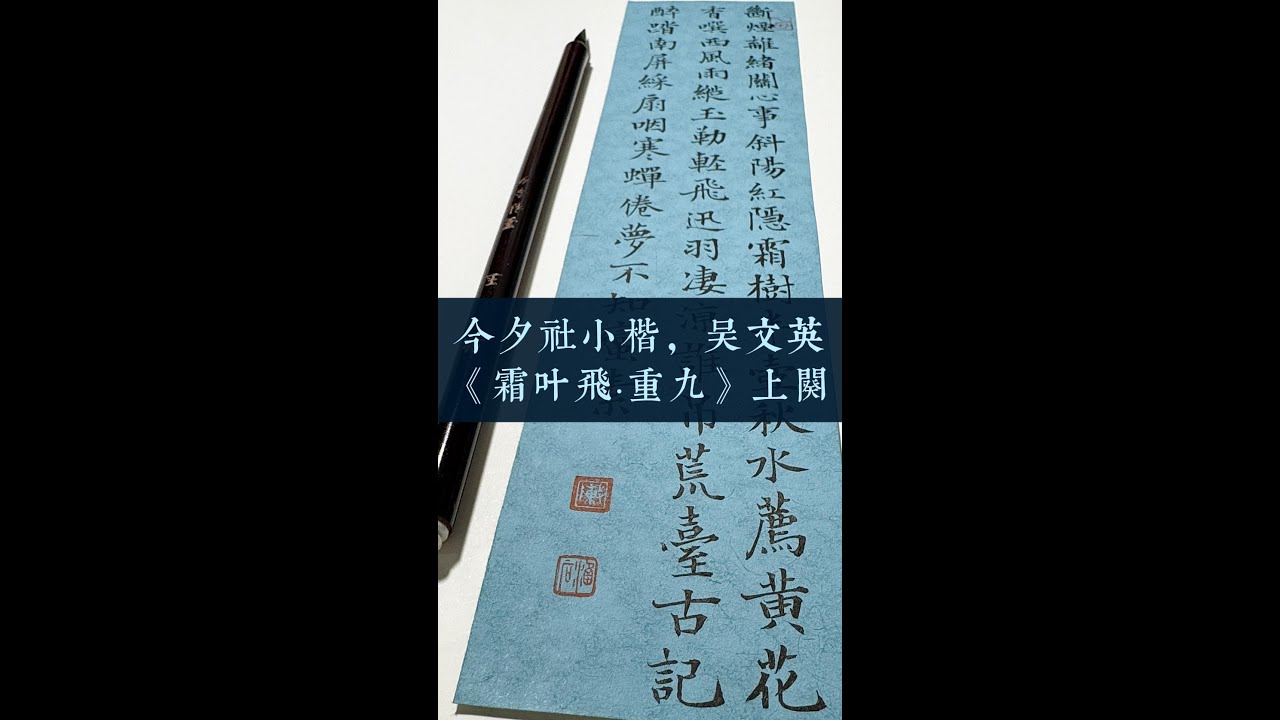 斷煙離緒關心事斜陽紅隱霜樹半壺秋水薦黄花
香噀西風雨縱玉勒輕飛迅羽凄涼誰吊荒臺古記
醉踏南屏綵扇咽寒蟬倦夢不知蠻素
今夕社小楷，吴文英
《霜叶飛·重九》上闋